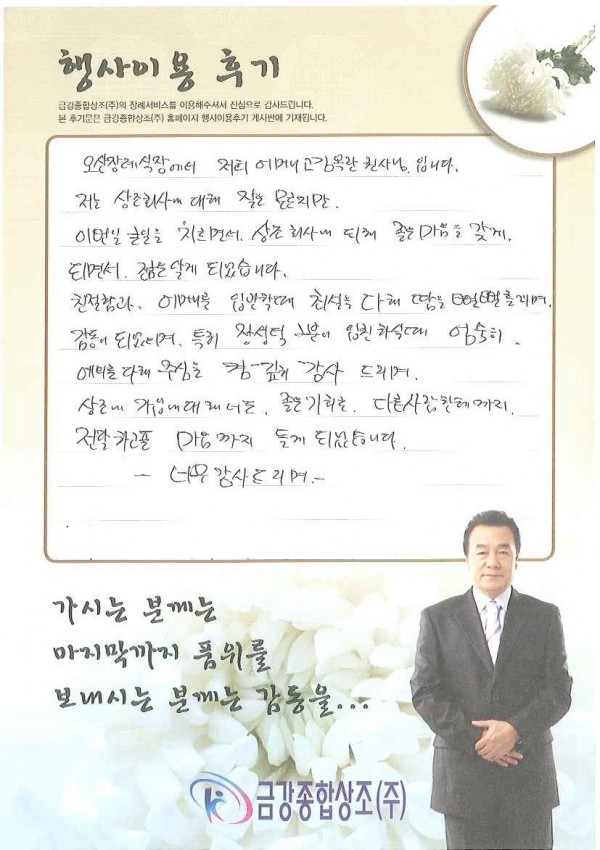 행사이용 후기
금강종합상조(주)의 장례서비스를 이용해주셔서 진심으로 감사드립니다.
본 후기문은 금강종합상조(주) 홈페이지 행사이용후기 게시판에 기재됩니다.
오산장례식장에서 저희 어머니 고김옥란 입니다.
저는 상조회사에 대해 잘은 모르지만.
이번일 을 치르면서. 상조 회사에 대해 좋은 마음을 갖게.
되면서. 점을 알게 되었습니다.
친절함과. 어머니를 입관할때 최선을 다해 땀을 뻘뻘 흘리며.
감동이 되었으며. 특히 정성덕 분이 입회 하실때 엄숙히.
예의를 다해 주심을 참- 깊히 감사 드리며.
상조에 가입에 대해서도. 좋은기회로. 다른사람한테까지.
전달하고픈 마음까지 들게 되었습니다.
- 너무 감사드리며.-
가시는 분께는
마지막까지 품위를
보내시는 분께는 감동을...
금강종합상조(주)